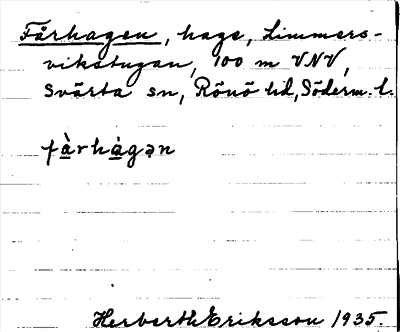 Fårhagen, hage, Limmers-
vikstugan, 100 m VNV,
Svärta sn, Rönö hd, Söderm. l.
fàrhàgən
Herberth Eriksson 1935.